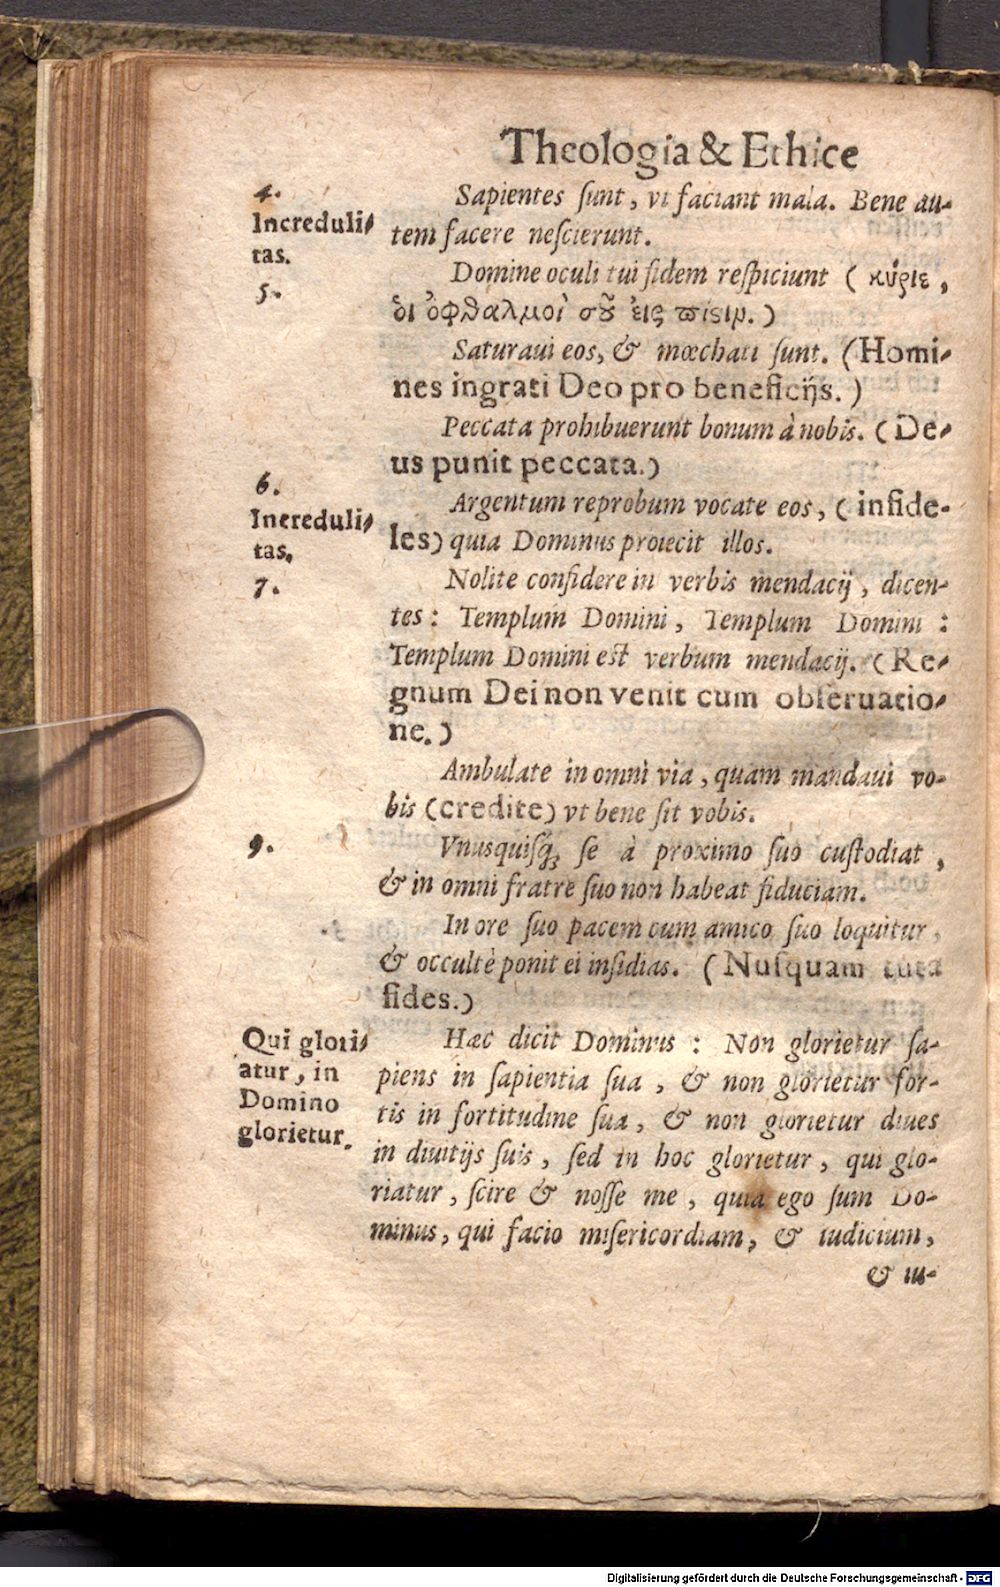 Theologia & Ethice
4.
Increduli-
tas.
5.
Sapientes ſunt, vt faciant mala. Bene au-
tem facere neſcierunt.
Domine oculi tui fidem reſpiciunt ( κύριε,
δι ὀφθαλμοὶ σοῦ εἰς πίστιν. )
Saturaui eos, & mœchati ſunt. (Homi-
nes ingrati Deo pro beneficijs. )
Peccata prohibuerunt bonum à nobis. (De-
us punit peccata.)
6.
Increduli-
tas.
7.
Argentum reprobum vocate eos, ( infide-
les) quia Dominus proiecit illos.
Nolite confidere in verbis mendacij, dicen-
tes: Templum Domini, Templum Domini :
Templum Domini est verbum mendacij. (Re-
gnum Dei non venit cum obſeruatio-
ne.)
Ambulate in omni via, quam mandaui vo-
bis (credite) vt bene ſit vobis.
9.
Vnusquiſq; ſe à proximo ſuo cuſtodiat,
& in omni fratre ſuo non habeat fiduciam.
In ore ſuo pacem cum amico ſuo loquitur,
& occultè ponit ei inſidias. ( Nuſquam tuta
fides.)
Qui glori-
atur, in
Domino
glorietur.
Hæc dicit Dominus : Non glorietur ſa-
piens in ſapientia ſua, & non glorietur for-
tis in fortitudine ſua, & non glorietur diues
in diuitijs ſuis, ſed in hoc glorietur, qui glo-
riatur, ſcire & noſſe me, quia ego ſum Do-
minus, qui facio miſericordiam, & iudicium,
& iu-
Digitalisierung gefördert durch die Deutsche Forschungsgemeinschaft - DFG